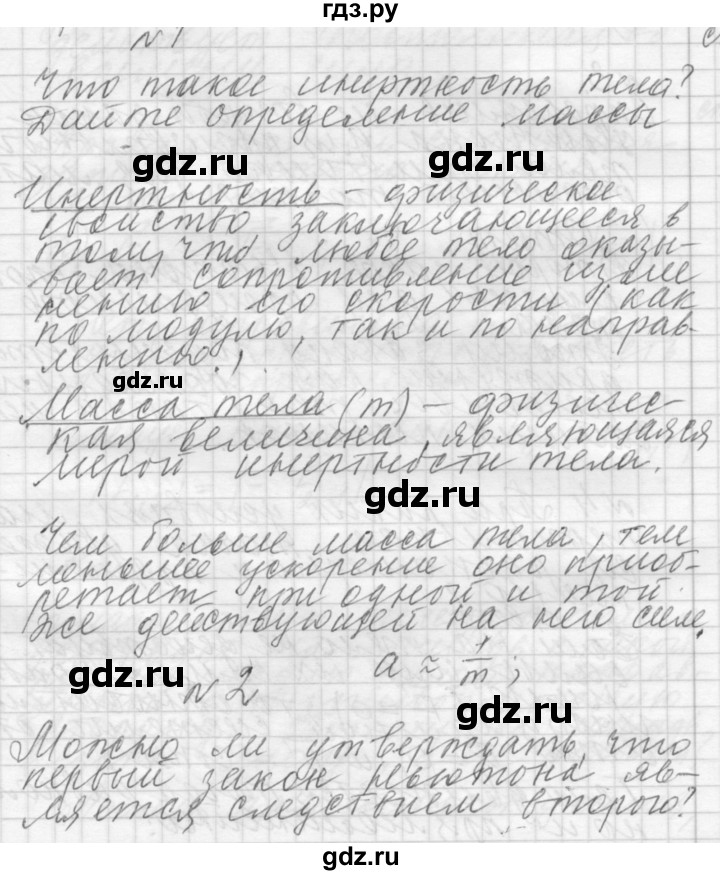 гдз.ру
№1
Что такое инертность тела?
Дайте определение массы
gdz.ru gdz.ru
Инертность - физическое
свойство заключающееся в
том, что любое тело оказы-
вает сопротивление изме
нению его скорости (как
по модулю, так и по направ-
лению.)
gdz.ru
Масса тела (m) - физичес-
кая величина, являющаяся
мерой инертности тела.
gdz.ru
Чем больше масса тела, тем
меньшее ускорение оно приоб-
ретает при одной и той
же действующей на него силе.
gdz.ru №2 a ~ 1/m;
gdz.ru
Можно ли утверждать, что
первый закон Ньютона яв-
ляется следствием второго?
gdz.ru